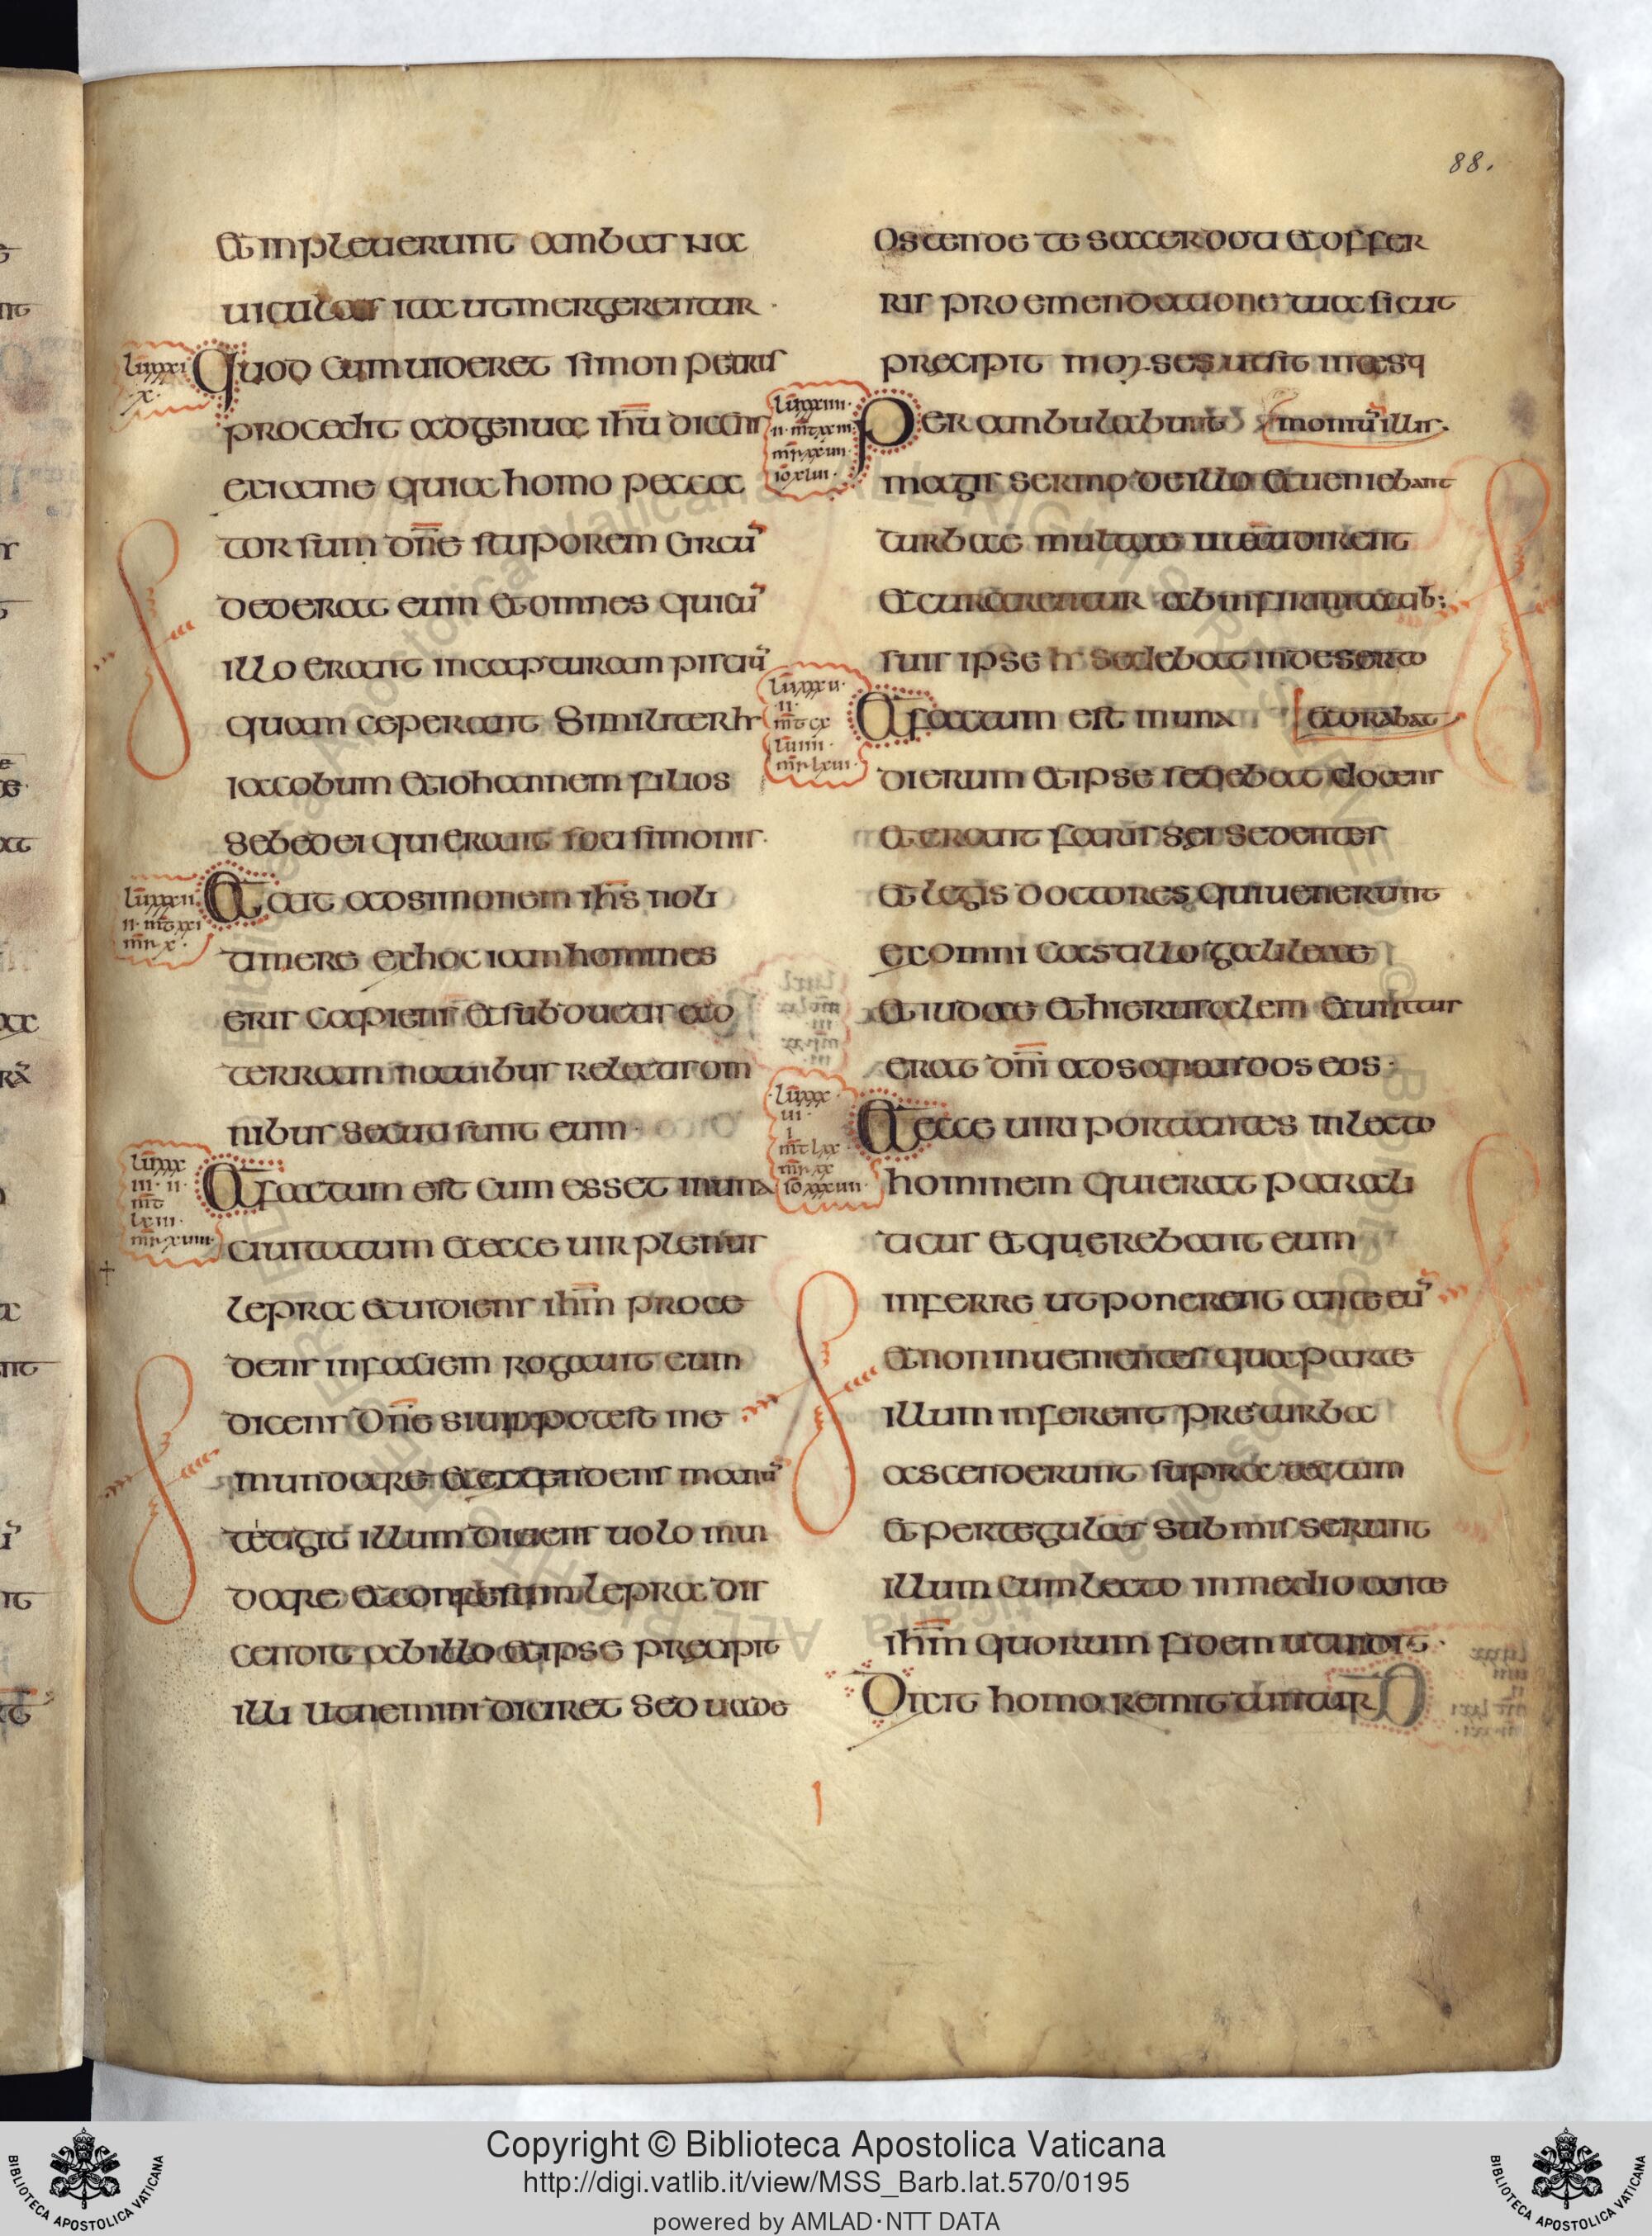 88.
Et inpleuerunt ambas na
uiculas ita ut mergerentur ·
Quod cum uideret simon petrus
procedit ad genua ih̄u dicens
exi a me quia homo pecca
tor sum dn̄e stuporem circu
dederat eum et omnes qui cū
illo erant in capturam pisciū
quam ceperant Similiter h
iacobum et iohannem filios
sebedei qui erant soci simonis ·
Et ait ad simonem ih̄s noli
timere ex hoc iam homines
eris capiens et subductis ad
terram nauibus relictis om
nibus secuti sunt eum ·
Et factum est cum esset in una
ciuitatum et ecce uir plenus
lepra et uidens ih̄m proce
dens in faciem rogauit eum
dicens Dn̄e si uis potest me
mundare et extendens manū
tetigit illum dicens uolo mun
dare et confestim lepra dis
cendit ab illo et ipse precipit
illi ut nemini diciret sed uade
ostende te sacerdoti et offer
ris pro emendatione tua sicut
precipit moyses ut sit in
Per ambulabunt monīu illis ·
magis sermo de illo et ueniebant
turbae multae ut audirent
et curarentur ab infirmitatib:
suis ipse h sedebat in deserto
Et factum est in una et orabat
dierum et ipse sedebat docens
et erant farissei sedentes
et legis doctores qui uenerunt
ex omni castello galileae
et iudae et hierusalem et uirtus
erat dn̄i ad sanandos eos ·
Et ecce uiri portantes in lecto
hominem qui erat parali
ticus et querebant eum
inferre ut ponerent ante eū
et non inuenientes qua parte
illum inferent pre turba
ascenderunt supra tectum
et per tegulas submisserunt
illum cum lecto in medio ante
ih̄m quorum fidem ut uidit ·
Dixit homo remittuntur
Copyright © Biblioteca Apostolica Vaticana
http://digi.vatlib.it/view/MSS_Barb.lat.570/0195
powered by AMLAD·NTT DATA
BIBLIOTECA APOSTOLICA VATICANA
BIBLIOTECA APOSTOLICA VATICANA